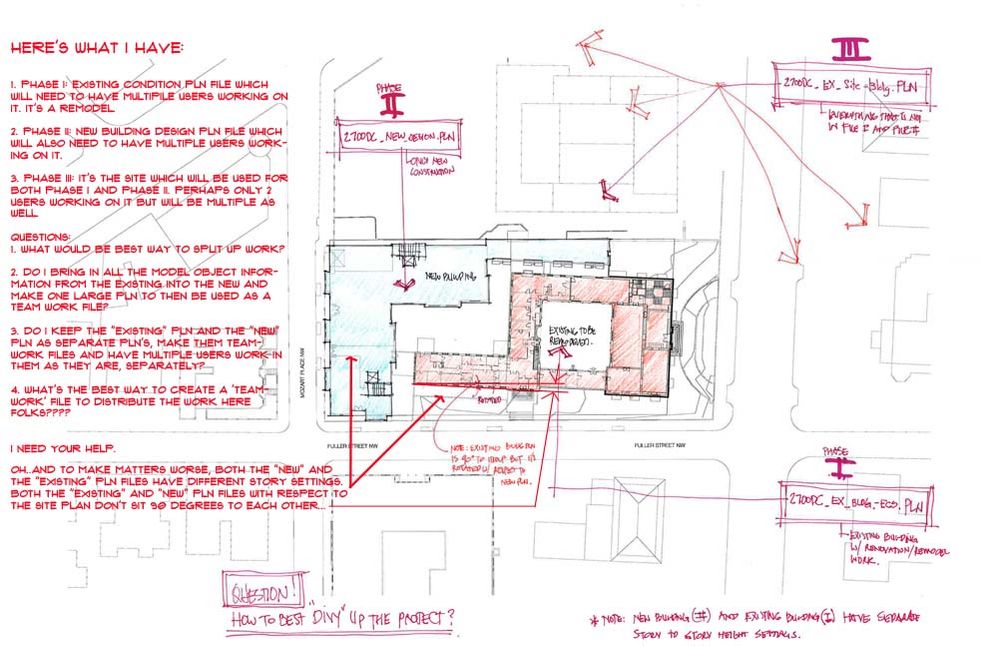 HERE'S WHAT I HAVE:
1. PHASE I: EXISTING CONDITION PLN FILE WHICH
WILL NEED TO HAVE MULTIPLE USERS WORKING ON
IT. IT'S A REMODEL
2. PHASE II: NEW BUILDING DESIGN PLN FILE WHICH
WILL ALSO NEED TO HAVE MULTIPLE USERS WORK-
ING ON IT.
3. PHASE III: IT'S THE SITE WHICH WILL BE USED FOR
BOTH PHASE I AND PHASE II. PERHAPS ONLY 2
USERS WORKING ON IT BUT WILL BE MULTIPLE AS
WELL
QUESTIONS:
1. WHAT WOULD BE BEST WAY TO SPLIT UP WORK?
2. DO I BRING IN ALL THE MODEL OBJECT INFOR-
MATION FROM THE EXISTING INTO THE NEW AND
MAKE ONE LARGE PLN TO THEN BE USED AS A
TEAM WORK FILE?
3. DO I KEEP THE "EXISTING" PLN AND THE "NEW"
PLN AS SEPARATE PLN'S, MAKE THEM TEAM-
WORK FILES AND HAVE MULTIPLE USERS WORK IN
THEM AS THEY ARE, SEPARATELY?
4. WHAT'S THE BEST WAY TO CREATE A 'TEAM-
WORK' FILE TO DISTRIBUTE THE WORK HERE
FOLKS????
I NEED YOUR HELP.
OH..AND TO MAKE MATTERS WORSE, BOTH THE "NEW" AND
THE "EXISTING" PLN FILES HAVE DIFFERENT STORY SETTINGS.
BOTH THE "EXISTING" AND "NEW" PLN FILES WITH RESPECT TO
THE SITE PLAN DON'T SIT 90 DEGREES TO EACH OTHER...
PHASE
II
2700DC_NEW_DEMON.PLN
ONLY NEW
CONSTRUCTION
III
2700DC_EX_Site-Bldg.PLN
EVERYTHING THAT IS NOT
IN FILE I AND FILE II
NEW BUILDING
EXISTING TO BE
REMODELED.
ROTATED
MOZART PLACE NW
FULLER STREET NW
FULLER STREET NW
NOTE: EXISTING BLDG PLN
IS 90° TO GROUP BUT IT'S
ROTATED W/ RESPECT TO
NEW PLN.
PHASE
I
2700DC_EX_BLDG-ECS.PLN
EXISTING BUILDING
W/ RENOVATION/REMODEL
WORK.
QUESTION!
HOW TO BEST "DIVY" UP THE PROJECT?
* NOTE: NEW BUILDING (II) AND EXISTING BUILDING (I) HAVE SEPARATE
STORY TO STORY HEIGHT SETTINGS.